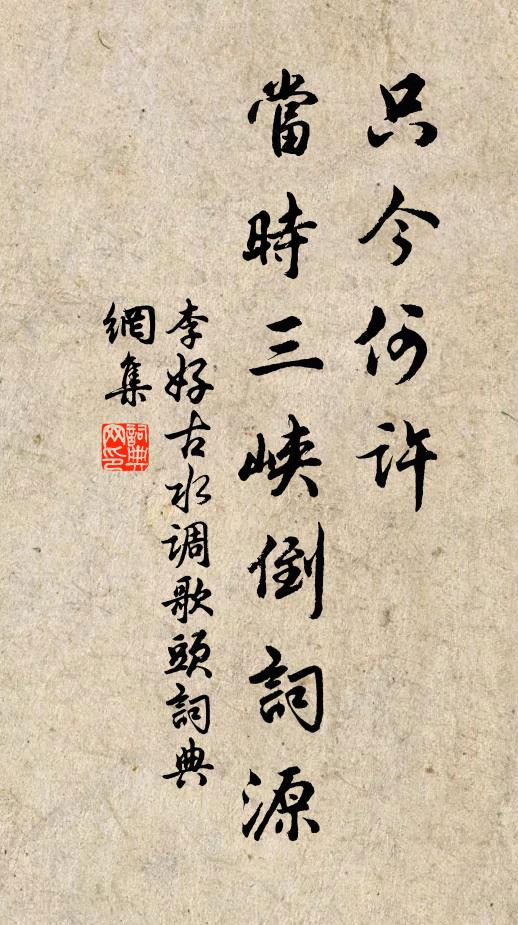 只今何許
當時三峽倒詞源
李好古水调歌頭詞典
網集
詞典网印